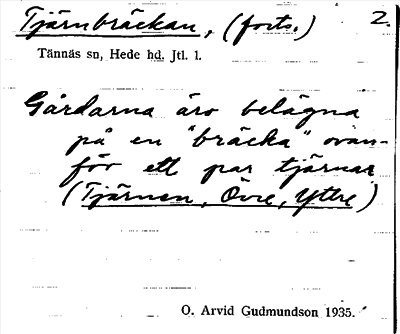 Tjärnbräckan, (forts.) 2.
Tännäs sn, Hede hd. Jtl. l.
Gårdarna äro belägna
på en "bräcka" ovan-
för ett par tjärnar
(Tjärnen, Övre, Yttre)
O. Arvid Gudmundson 1935.